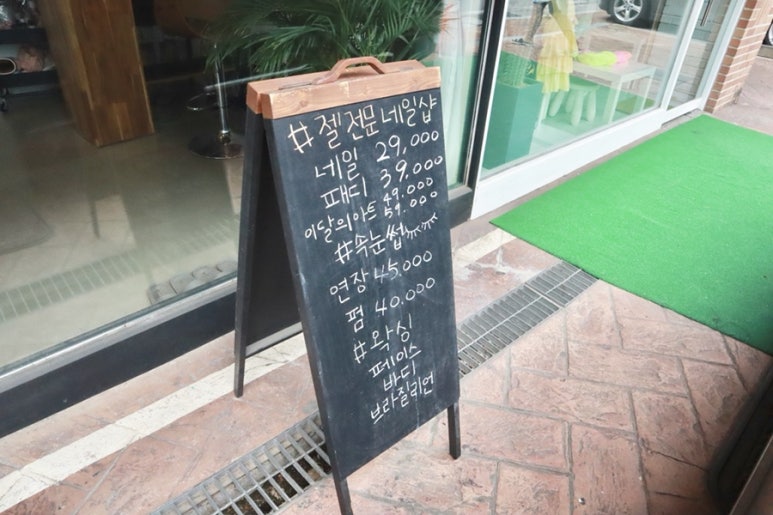 #젤전문네일샵
네일 29,000
패디 39.000
이달의아트 49.000
59.000
#속눈썹
연장 45.000
펌 40.000
#왁싱
페이스
바디
브라질리언